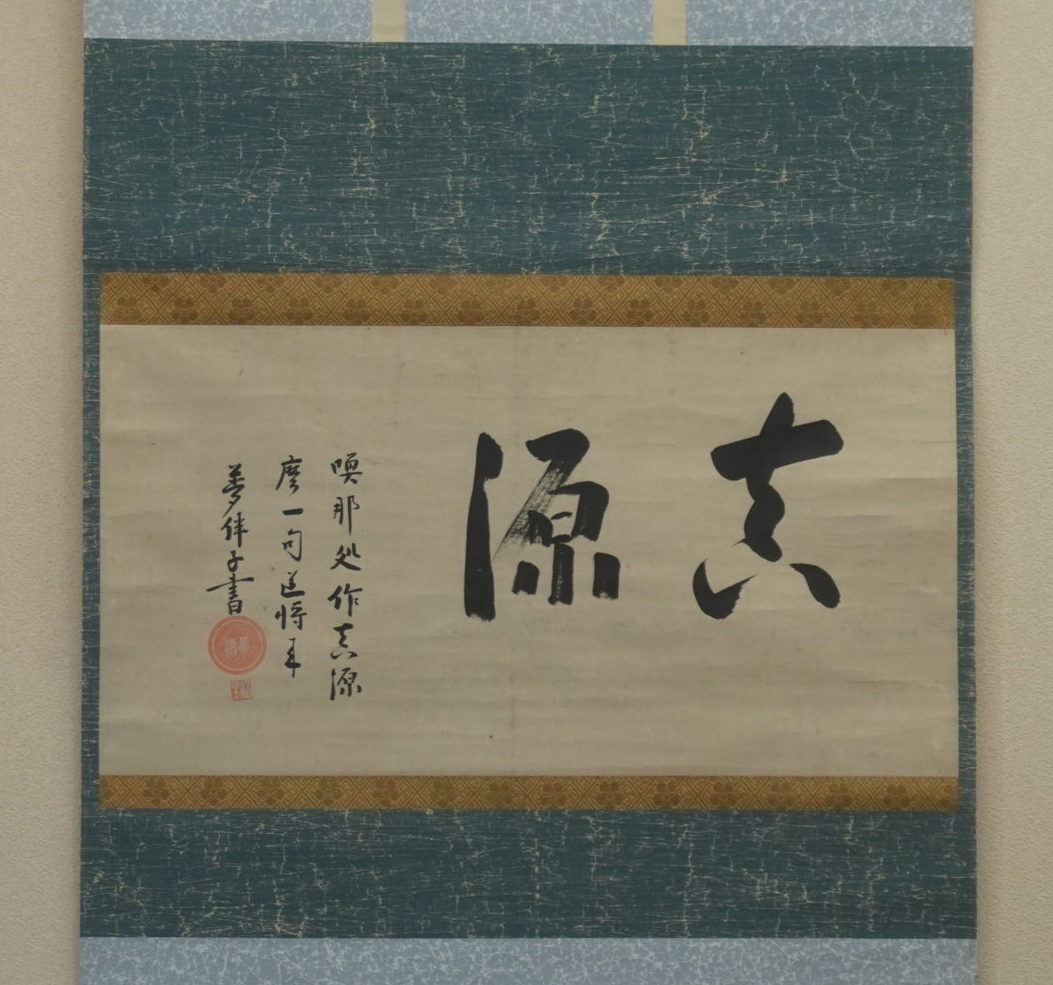 真源
喚那処作真源
麼一句道将来
夢伴子書